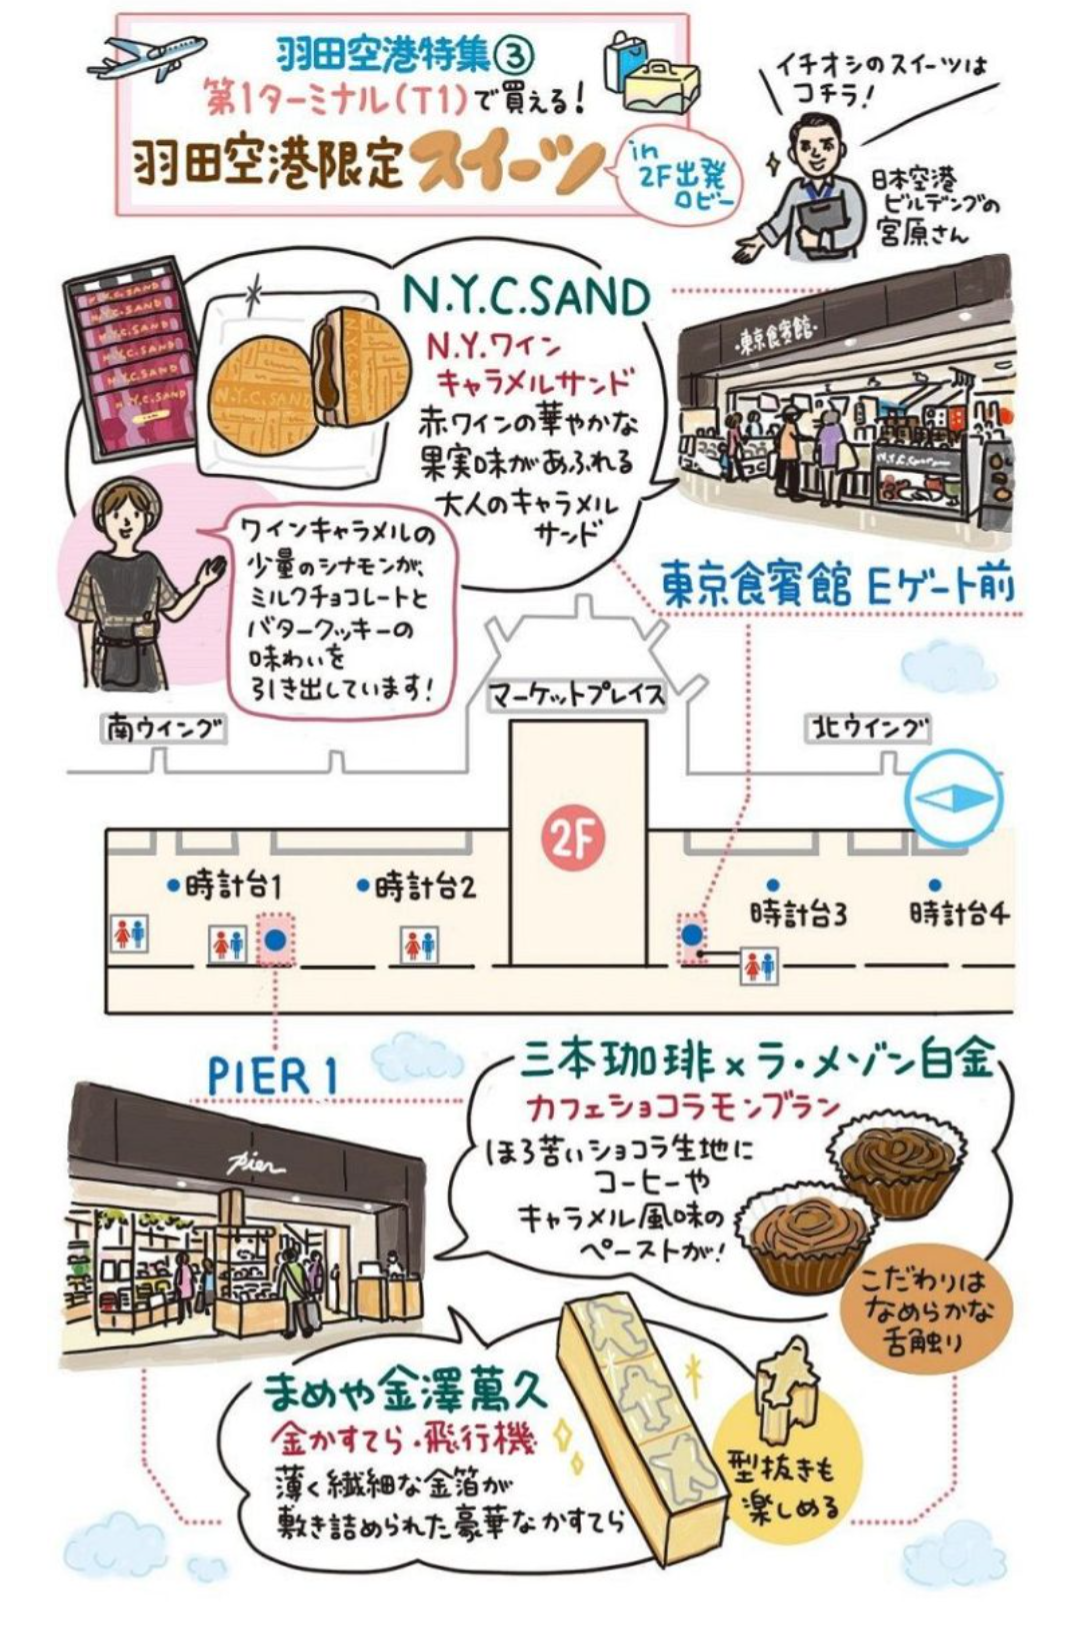 羽田空港特集③
第1ターミナル(T1)で買える!
羽田空港限定スイーツ
in
2F出発
ロビー
イチオシのスイーツは
コチラ!
日本空港
ビルデングの
宮原さん
N.Y.C.SAND
N.Y.ワイン
キャラメルサンド
赤ワインの華やかな
果実味があふれる
大人のキャラメル
サンド
N.Y.C.SAND
N.Y.C.SAND
N.Y.C.SAND
N.Y.C.SAND
N.Y.C.SAND
N.Y.C.SAND
N.Y.C.SAND
N.Y.C.SAND
・東京食賓館・
ワインキャラメルの
少量のシナモンが、
ミルクチョコレートと
バタークッキーの
味わいを
引き出しています!
東京食賓館 Eゲート前
マーケットプレイス
南ウイング
北ウイング
2F
時計台1
時計台2
時計台3
時計台4
PIER 1
pier
三本珈琲×ラ・メゾン白金
カフェショコラモンブラン
ほろ苦いショコラ生地に
コーヒーや
キャラメル風味の
ペーストが!
こだわりは
なめらかな
舌触り
まめや金澤萬久
金かすてら・飛行機
薄く繊細な金箔が
敷き詰められた豪華なかすてら
型抜きも
楽しめる